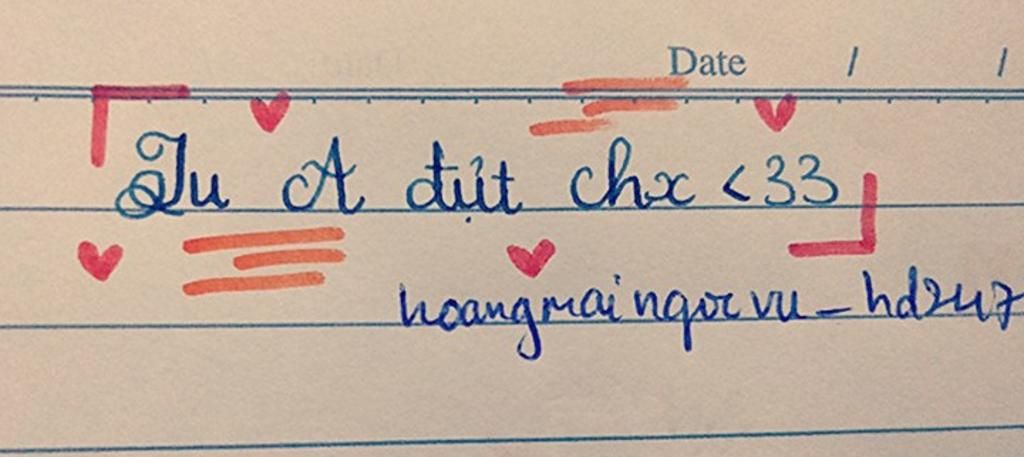 Date / /
Tu A đụt chx <33
hoangmaingocvu_hd247